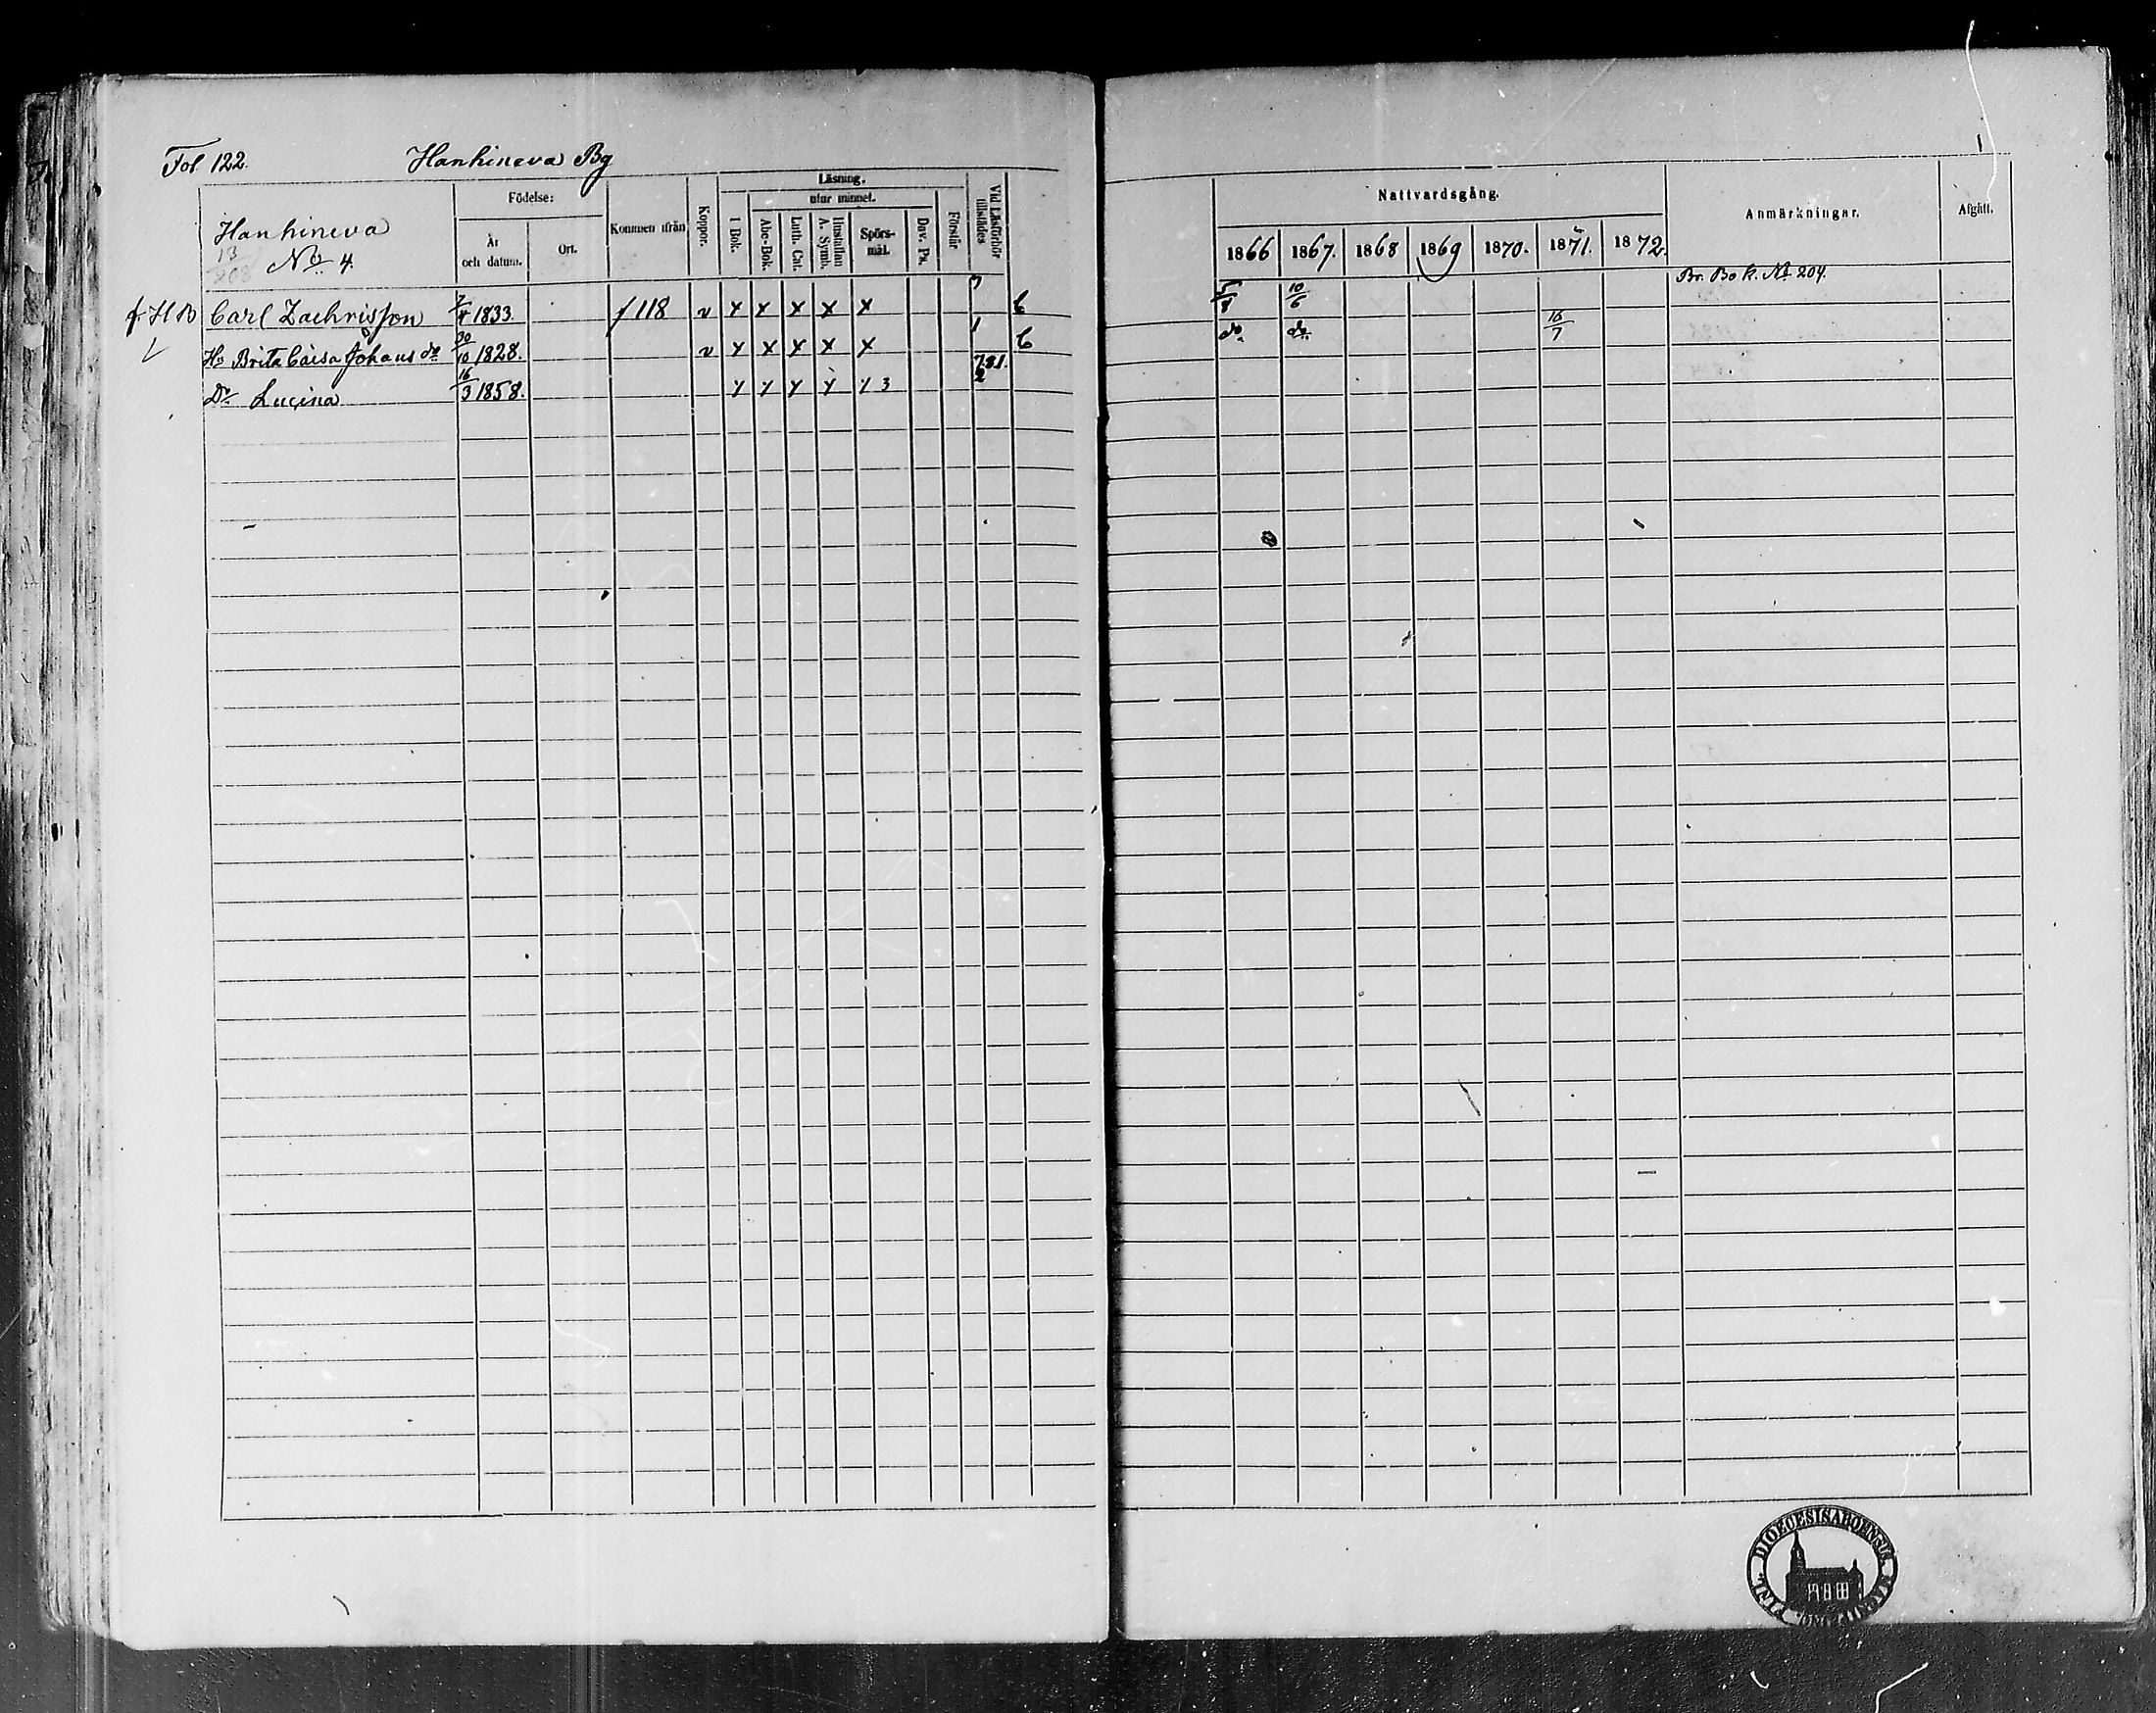 Fol. 122. Hanhineva Bg
Hanhineva
13
208 No 4.
Födelse:
År och datum. Ort.
Kommen ifrån
Koppor.
Läsning.
utur minnet.
I Bok.
Abc-Bok.
Luth. Cat.
Hustaflan A. Symb.
Spörs-mål.
Dav. Ps.
Förstår
Vid Läsförhör tillstädes
Nattvardsgång.
1866 1867. 1868 1869 1870. 1871. 1872.
Anmärkningar.
Afgått.
Br. Bok. No 204.
Carl Zachrisson 7/4 1833. f 118 v x x x x x 10/6
Hu Brita Caisa Johans dr 30/10 1828. v x x x x x do. do. 16/7
Dr Lucina 16/3 1858. 3
DIOECESIS ABOENSIS
FINL.